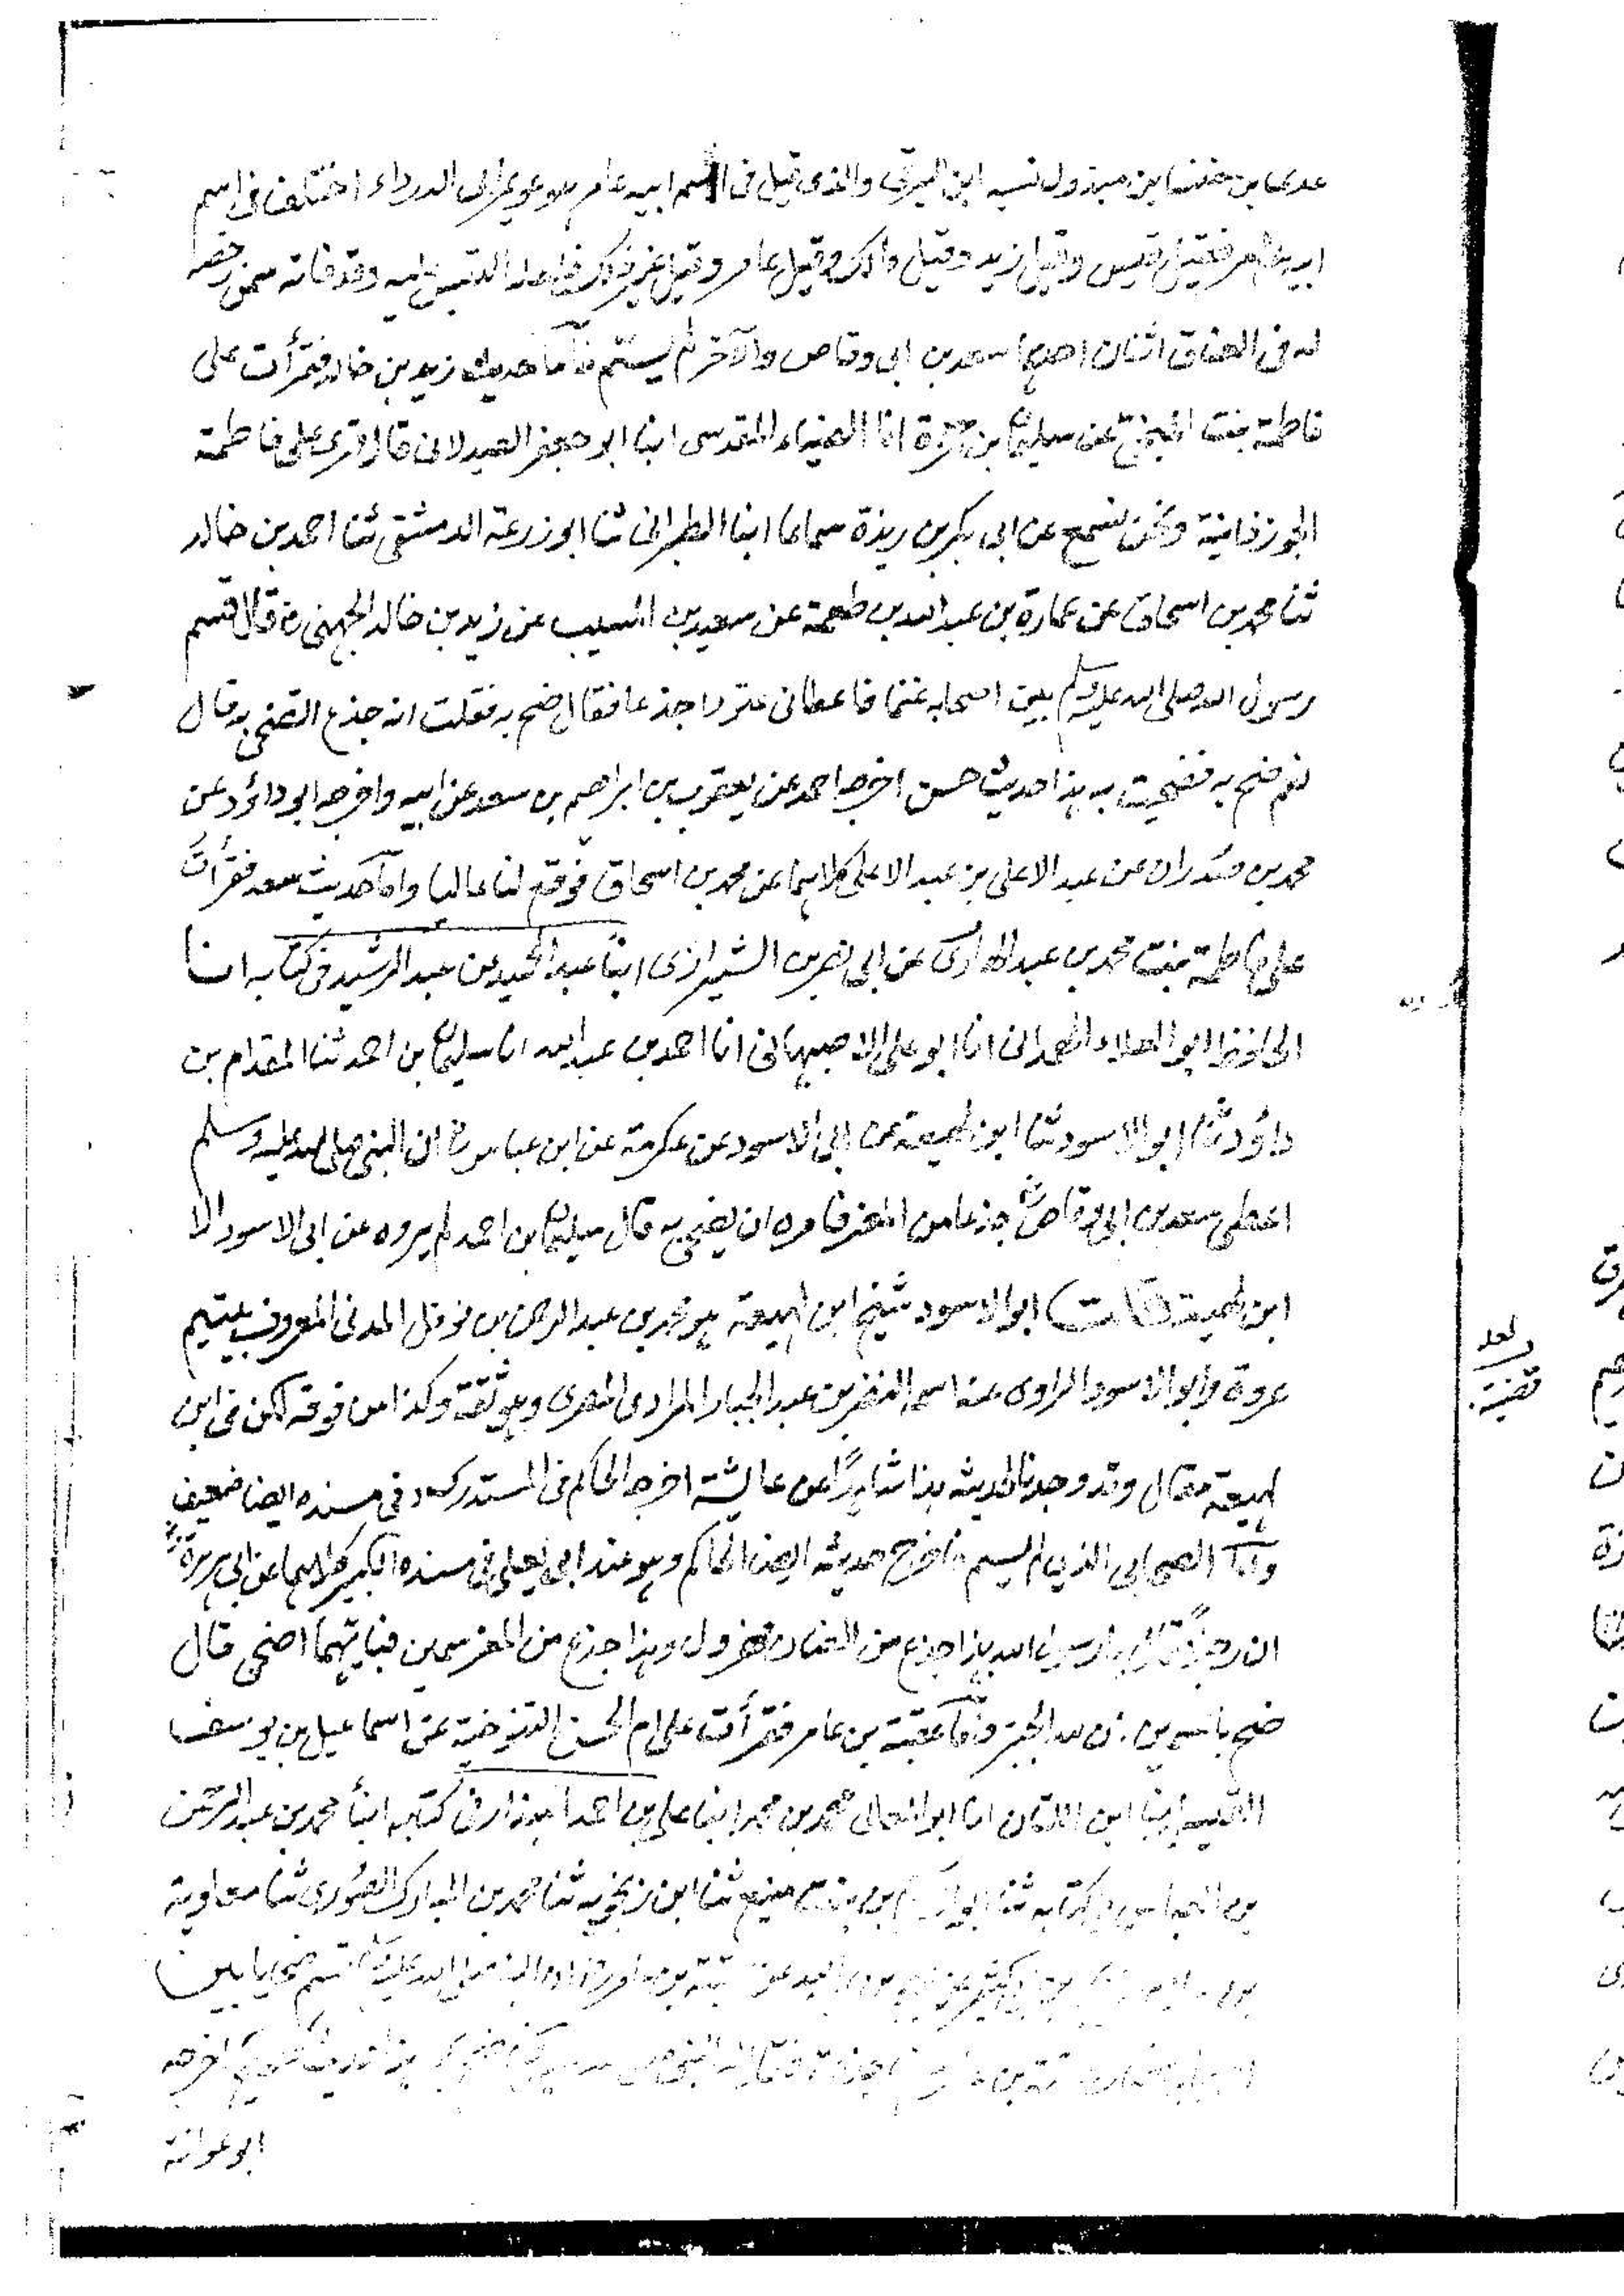 عدى بن غنم بن مبذول نسبه ابن البرقى والذى قيل فى اسم ابيه عامر هو عويمر ابى الدرداء اختلف فى اسم
ابيه فقيل قيس وقيل زيد وقيل مالك وقيل عامر وقيل غير ذلك فلعله التبس عليه وقد فاته ممن رخص
له فى العناق اثنان احدهما سعد بن ابى وقاص والآخر لم يسم فاما حديث زيد بن خالد فقرأت على
فاطمة بنت المنجا عن سليمان بن حمزة انا الضياء المقدسى انبا ابو جعفر الصيدلانى قال قرئ على فاطمة
الجوزدانية ونحن نسمع عن ابى بكر بن ريذة سماعا انبا الطبرانى ثنا ابو زرعة الدمشقى ثنا احمد بن خالد
ثنا محمد بن اسحاق عن عمارة بن عبد الله بن طعمة عن سعيد بن المسيب عن زيد بن خالد الجهنى رض قال قسم
رسول الله صلى الله عليه وسلم بين اصحابه غنما فاعطانى عتودا جذعا فقال ضح به فقلت انه جذع اضحى به قال
نعم ضح به فضحيت به هذا حديث حسن اخرجه احمد عن يعقوب بن ابراهيم بن سعد عن ابيه واخرجه ابو داؤد عن
محمد بن صدران عن عبد الاعلى بن عبد الاعلى كلاهما عن محمد بن اسحاق فوقع لنا عاليا واما حديث سعد فقرأت
على فاطمة بنت محمد بن عبد الهادى عن ابى نصر بن الشيرازى انبأ عبد الحميد بن عبد الرشيد فى كتابه انا
الحافظ ابو العلاء الهمدانى انا ابو على الاصبهانى انا احمد بن عبد الله انا سليمان بن احمد ثنا المقدام بن
داؤد ثنا ابو الاسود ثنا ابن لهيعة عن ابى الاسود عن عكرمة عن ابن عباس رض ان النبى صلى الله عليه وسلم
اعطى سعد بن ابى وقاص رض جذعا من المعز فامره ان يضحى به قال سليمان بن احمد لم يروه عن ابى الاسود الا
ابن لهيعة (قلت) ابو الاسود شيخ ابن لهيعة هو محمد بن عبد الرحمن بن نوفل المدنى المعروف بيتيم
عروة وابو الاسود الراوى عنه اسمه النضر بن عبد الجبار المرادى المصرى وهو ثقة وكذا من فوقه لكن فى ابن
لهيعة مقال وقد وجدنا لحديثه هذا شاهدًا عن عائشة اخرجه الحاكم فى المستدرك وفى سنده ايضا ضعيف
واما الصحابى الذى لم يسم فاخرج حديثه ايضا الحاكم وهو عند ابى يعلى فى مسنده الكبير كلاهما عن ابى هريرة رض
ان رجلًا قال يا رسول الله هذا جذع من الضان مهزول وهذا جذع من المعز سمين فبايهما اضحى قال
ضح بالسمين فان لله الخير واما عقبة بن عامر فقرأت على ام الحسن التنوخية عن اسماعيل بن يوسف
القيسى انبا ابن اللتى انا ابو المعالى محمد بن محمد انبا على بن احمد البندار فى كتابه انبأ محمد بن عبد الرحمن
بن العباس فى كتابه ثنا ابو القاسم بن بنت منيع ثنا ابن زنجويه ثنا محمد بن المبارك الصورى ثنا معاوية
بن سلام عن يحيى بن ابى كثير عن عقبة بن عامر رض ان النبى صلى الله عليه وسلم قسم ضحايا بين
هذا حديث صحيح اخرجه
ابو عوانة
لعله
قضية